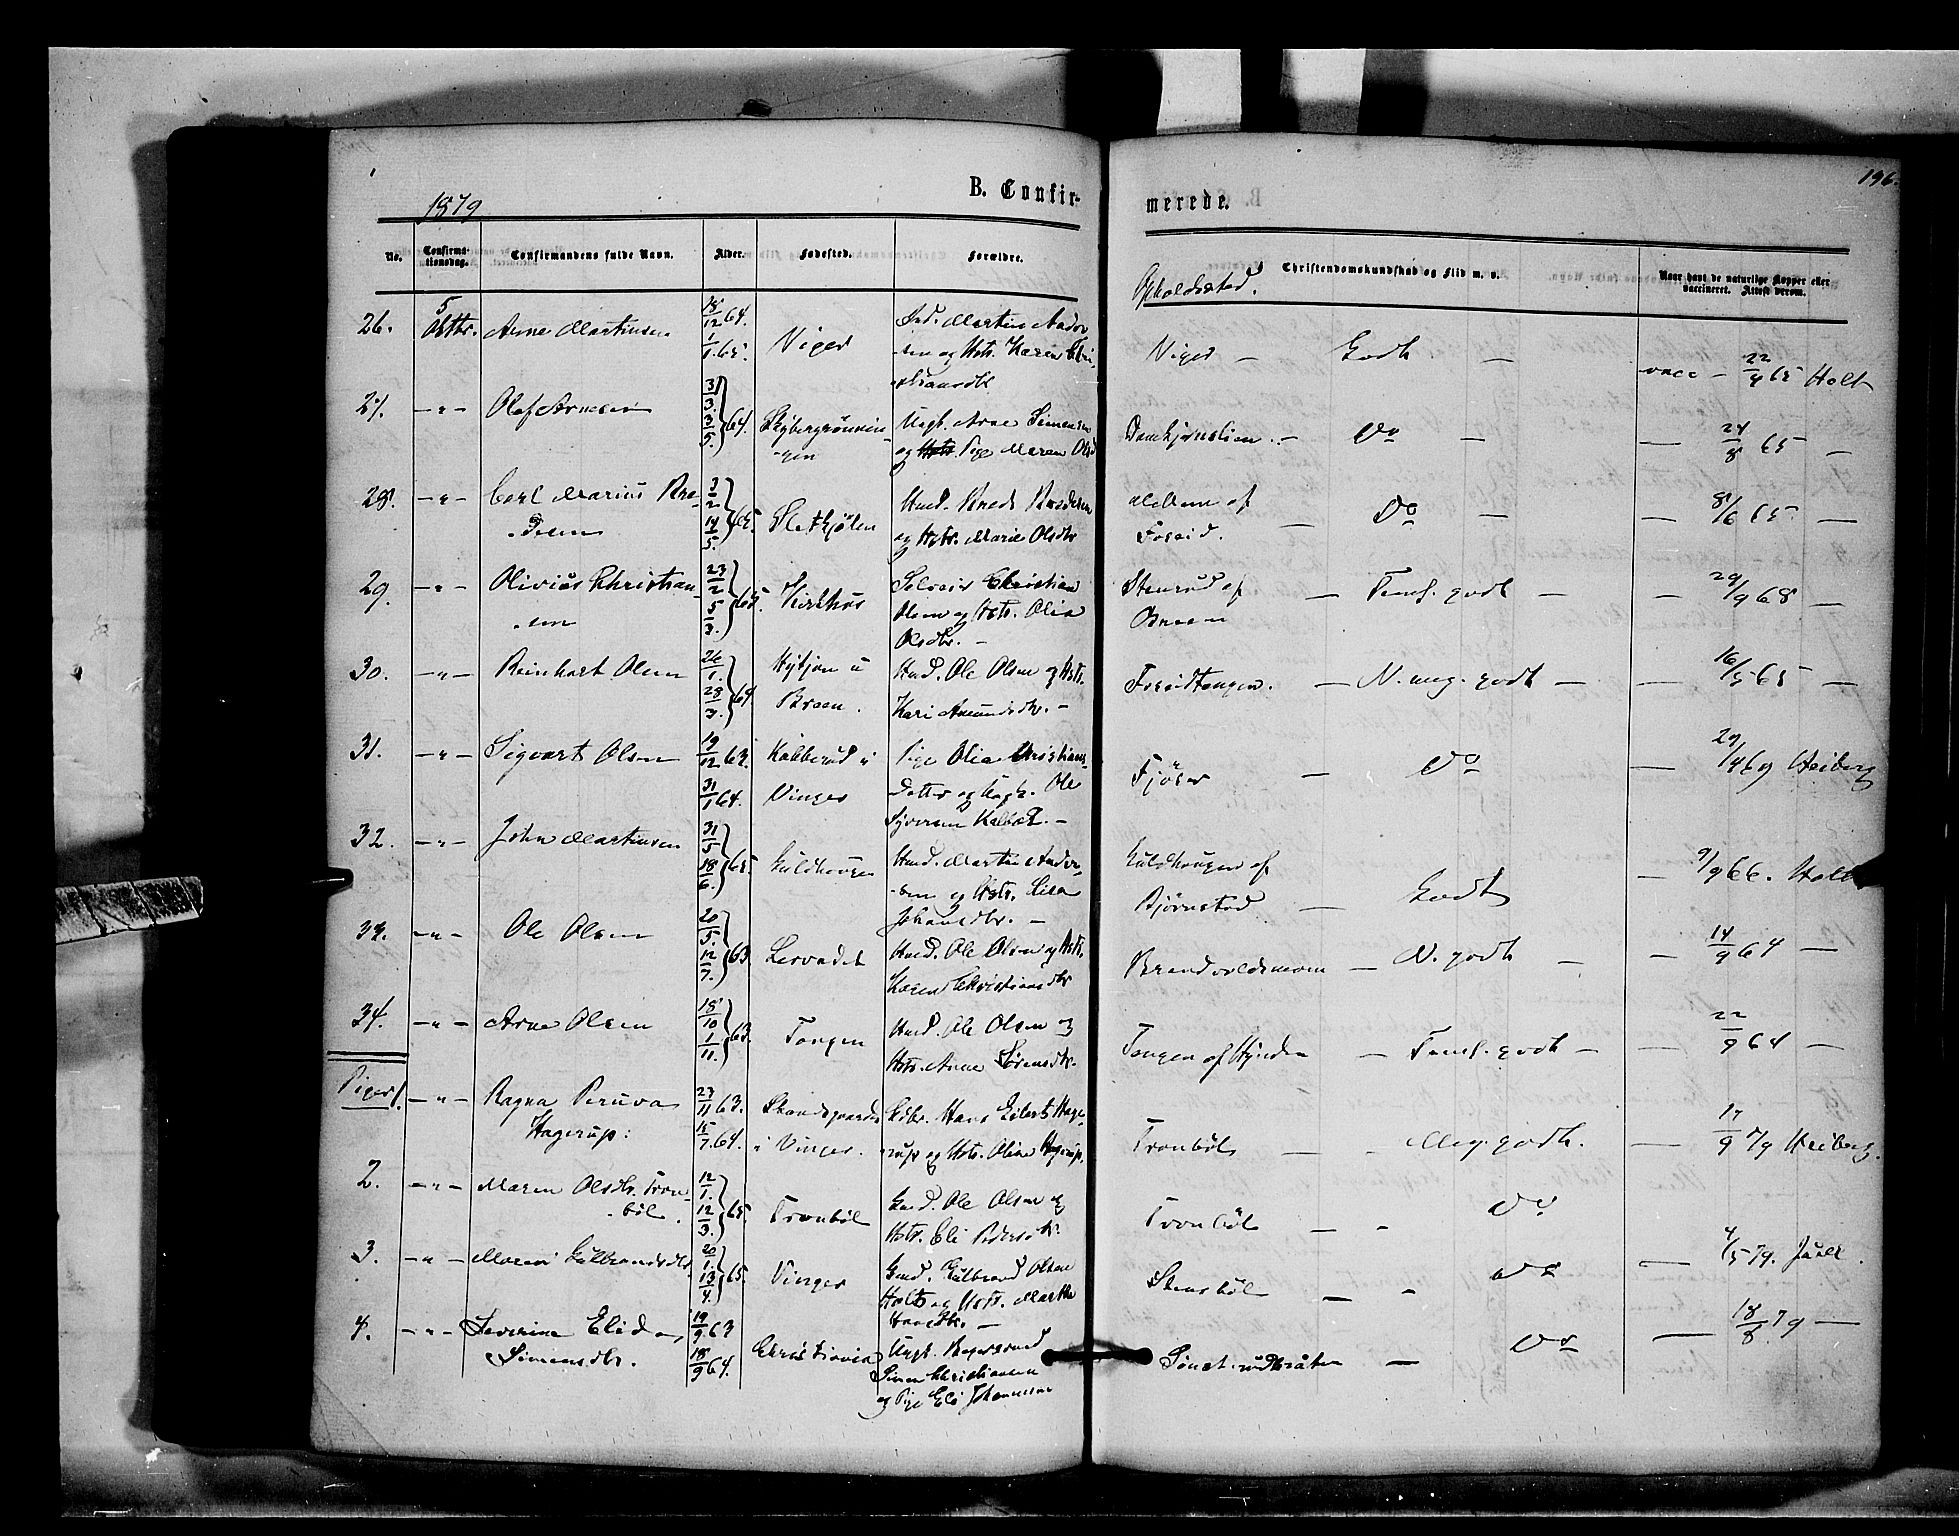 196.
1879
B. Confir-
merede.
No.
Confirma-
tionsdag.
Confirmandens fulde Navn.
Alder.
Fødested.
Forældre.
Opholdssted.
Christendomskundskab og Flid m. v.
Naar havt de naturlige Kopper eller
vaccineret. Attest derom.
26. 5 Octbr. Arne Martinsen 18/12 64. 1/1 65. Viger
Ind. Martin Ander
sen og Hstr. Karen Chri
stiansdtr
Viger — Godt — vacc — 22/4 65 Holt
27. —"— Olof Arnesen 31/3. 3/5. 64. Skybergrönnin
gen
Ungk. Arne Simensen
og Pige Maren Olsd
— Do — — 24/8 65 —
28. —"— Carl Marius Bre
desen
3/2 14/5. 65. Sletkjølen
Hmd. Brede Bredesen
og Hstr. Marie Olsdtr
af
Foseid. — Do — — 8/6 65 —
29. —"— Olivius Christian
sen
23/2 5/3. 65.
Christian
Olsen og Hstr. Olia
Olsdtr. —
Stenrud af
— Temf. godt — — 29/9 68 —
30. —"— Reinhart Olsen 26/1. 28/3. 64
Hmd. Ole Olsen og Hstr.
Kari Amundsdtr. —
— N. meg. godt — — 16/5 65 —
31. —"— Sigvart Olsen 19/12 63. 31/1 64. Kabberud i
Vinger
Pige Olia Christians
datter og Ungk. Ole
Syversen
Fjöser — Do — 29/4 69 Heiberg
32. —"— John Martinsen 31/5 18/6. 65. Guldhougen
Hmd. Martin Ander
sen og Hstr.
Johansdtr. —
Guldhougen af
Bjørnstad — Godt — 9/9 66. Holt
33. —"— Ole Olsen 20/5. 12/7. 63 Lervadet
Hmd. Ole Olsen og Hstr.
Karen Christiansdtr
Brandvoldsmoen — N. godt — — 14/9 64 —
34. —"— Arne Olsen 18/10 1/11. 63. Tangen
Hmd. Ole Olsen og
Hstr. Anne Sørensdtr.
Tangen af Hynden — Temf. godt — — 22/9 64 —
Piger
1. —"— Ragna Peruva
Hagerup:
23/11 63. 15/7. 64. Skandsgaarden
i Vinger.
Hans Eilert Hage
rup og Hstr. Oline Hagerup.
Tronböl — Meg. godt. — 17/9 79 Heiberg.
2. —"— Maren Olsdtr. Tron
böl.
12/1. 12/3. 65. Tronböl
Gmd. Ole Olsen og
Hstr. Eli Pedersdtr.
Tronböl — Do
3. —"— Maren Gulbrandsdtr. 20/1. 13/4. 65. Vinger
Gmd. Gulbrand Olsen
Holts og Hstr. Marthe
—
Stensböl — Do — 4/5 79. Juell.
4. —"— Severine Elida
Simensdtr.
19/9. 63 18/9 64. Christiania
Ungk. Bagersvend
Simen Christiansen
og Pige Eli Johannesen
— Do — 18/8. 79 —